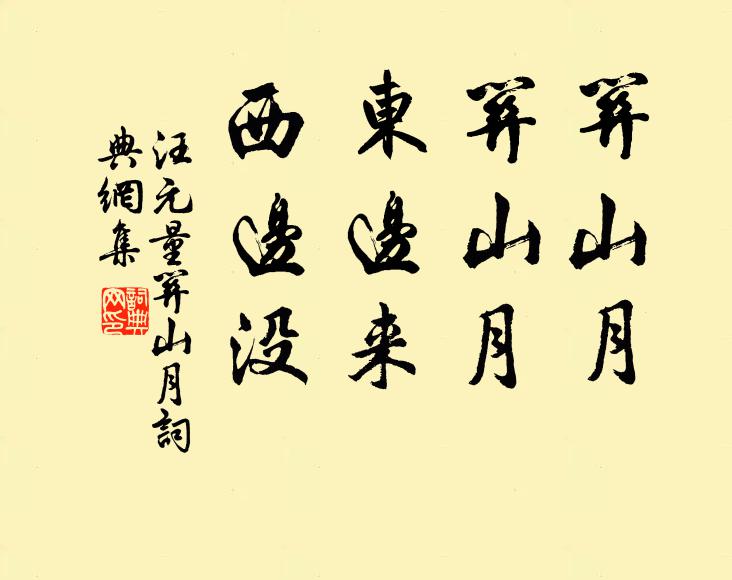 關山月
關山月
東邊来
西邊没
汪元量關山月詞
典網集
詞典
网印